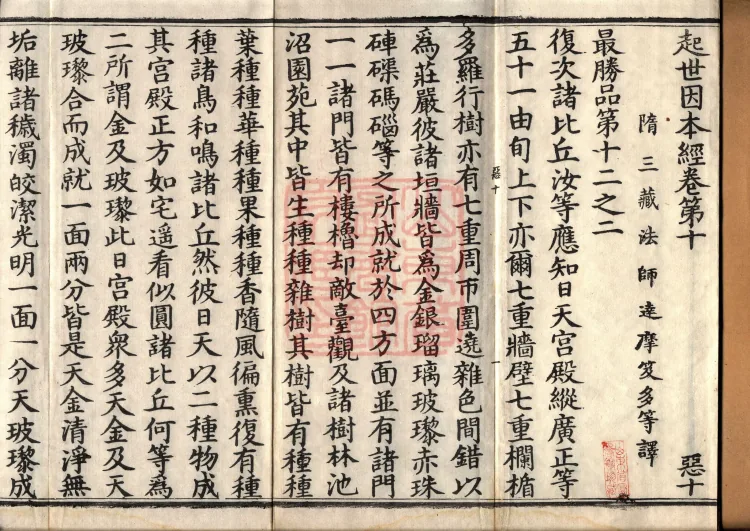 起世因本經卷第十
惡十
隋三藏法師達摩笈多等譯
最勝品第十二之二
復次諸比丘汝等應知日天宮殿縱廣正等
五十一由旬上下亦爾七重牆壁七重欄楯
多羅行樹亦有七重周帀圍遶雜色間錯以
惡十
一
為莊嚴彼諸垣牆皆為金銀瑠璃玻瓈赤珠
硨磲碼碯等之所成就於四方面並有諸門
一一諸門皆有樓櫓却敵臺觀及諸樹林池
沼園苑其中皆生種種雜樹其樹皆有種種
葉種種華種種果種種香隨風徧熏復有種
種諸鳥和鳴諸比丘然彼日天以二種物成
其宮殿正方如宅遙看似圓諸比丘何等為
二所謂金及玻瓈此日宮殿眾多天金及天
玻瓈合而成就一面兩分皆是天金清淨無
垢離諸穢濁皎潔光明一面一分天玻瓈成